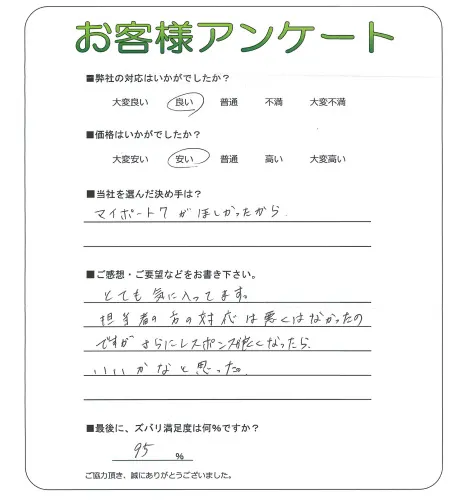 お客様アンケート
■弊社の対応はいかがでしたか？
大変良い 良い 普通 不満 大変不満
■価格はいかがでしたか？
大変安い 安い 普通 高い 大変高い
■当社を選んだ決め手は？
マイポート7がほしかったから.
■ご感想・ご要望などをお書き下さい。
とても気に入ってます。
担当者の方の対応は悪くはなかったの
ですがさらにレスポンス良くなったら、
いいかなと思った。
■最後に、ズバリ満足度は何％ですか？
95 ％
ご協力頂き、誠にありがとうございました。